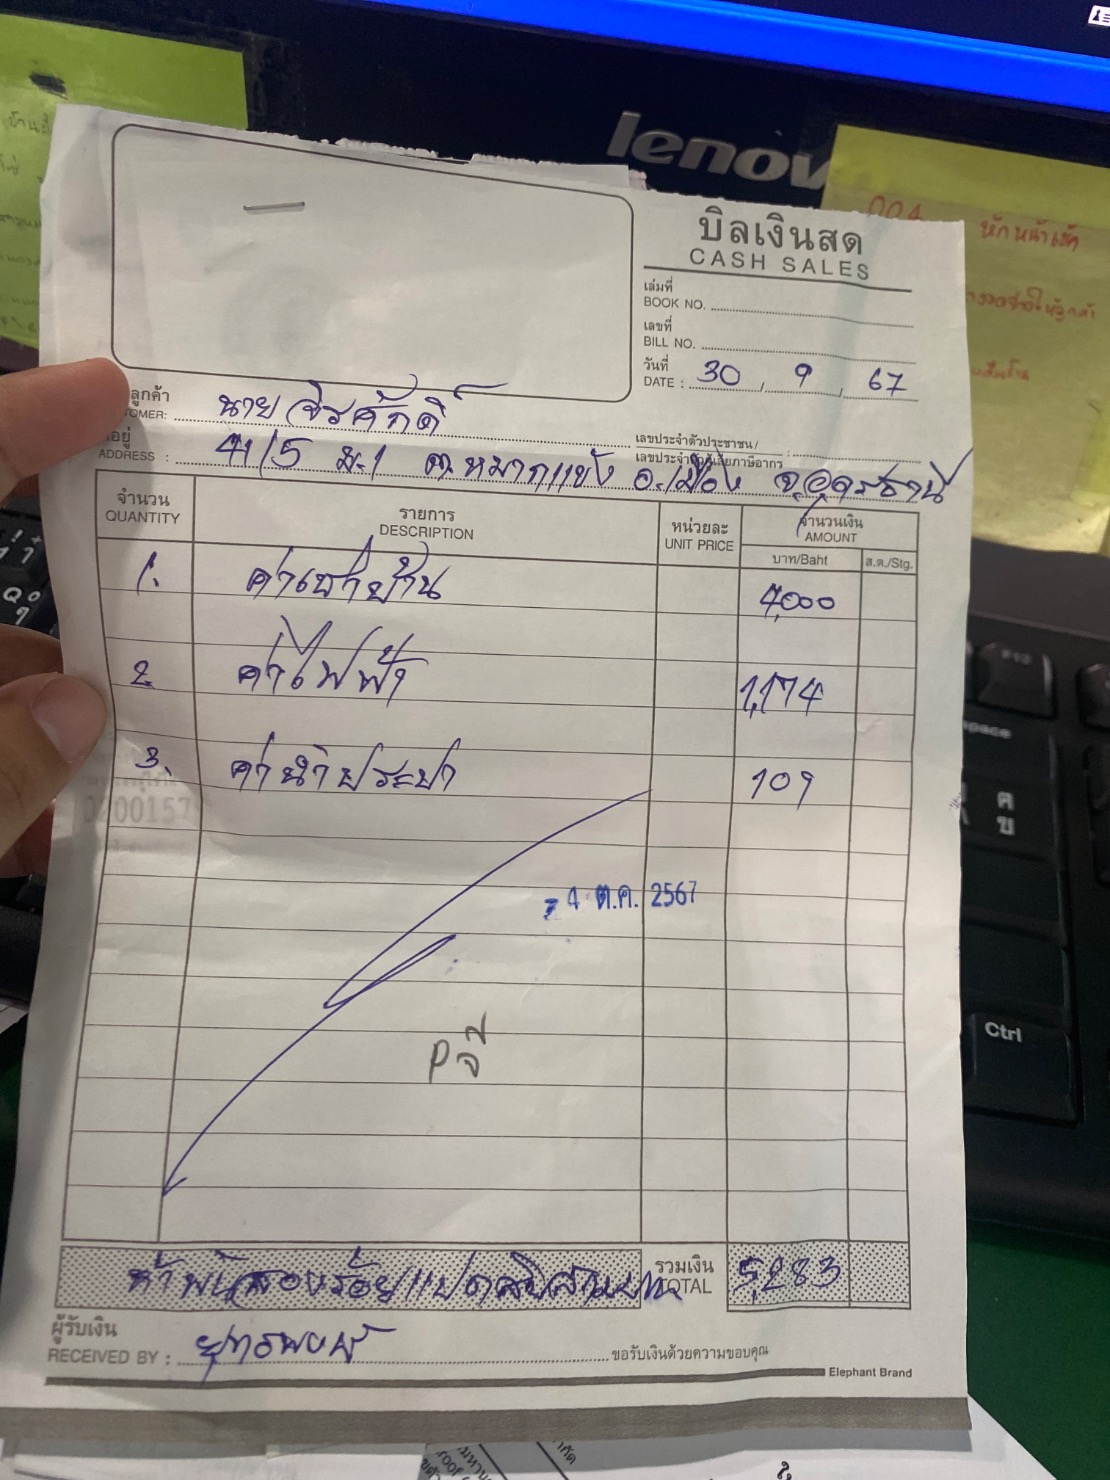 lenov
004
หักหน้าเช้า
บิลเงินสด
CASH SALES
เล่มที่
BOOK NO.
เลขที่
BILL NO.
วันที่
DATE : 30 / 9 / 67
ลูกค้า
OMER: นายจิรศักดิ์
อยู่
ADDRESS : 41/5 ม.1 ต.หมากแข้ง อ.เมือง จ.อุดรธานี
เลขประจำตัวประชาชน/
เลขประจำตัวผู้เสียภาษีอากร :
จำนวน รายการ หน่วยละ จำนวนเงิน
QUANTITY DESCRIPTION UNIT PRICE AMOUNT
บาท/Baht ส.ต./Stg.
1. ค่าเช่าบ้าน 4,000
2. ค่าไฟฟ้า 1,174
3. ค่าน้ำประปา 109
0200157
4 ต.ค. 2567
Pจี
ห้าพันสองร้อยแปดสิบสามบาท รวมเงิน 5,283
TOTAL
ผู้รับเงิน
RECEIVED BY : ขอรับเงินด้วยความขอบคุณ
Elephant Brand
Ctrl